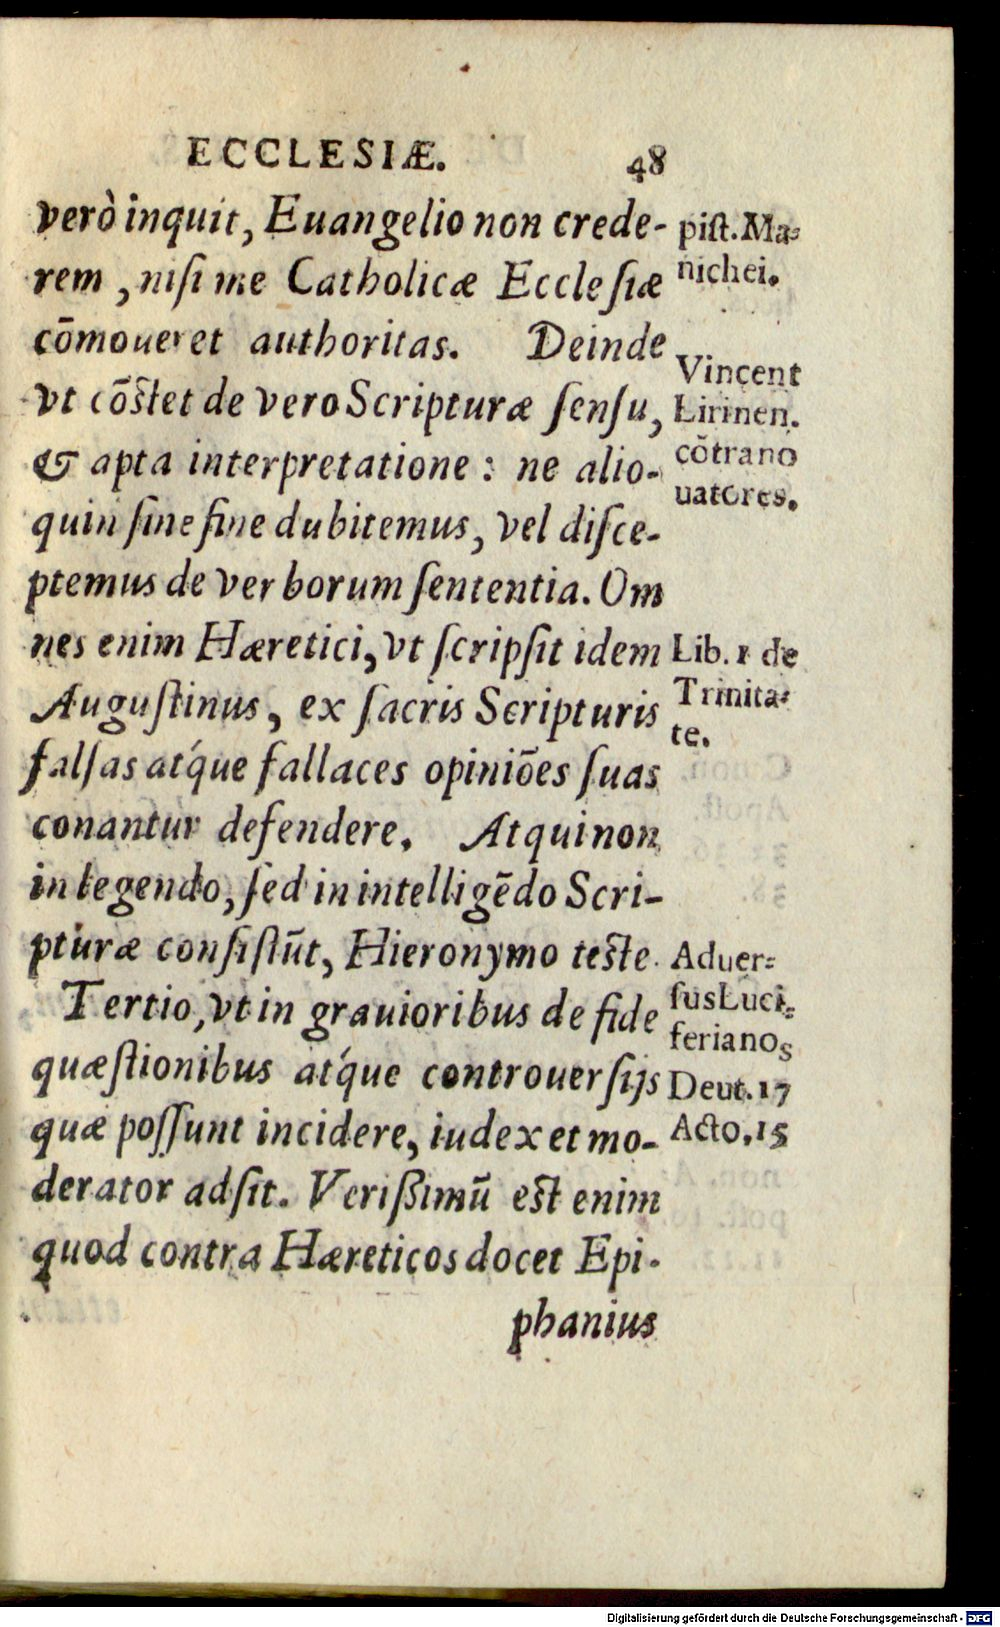 ECCLESIÆ. 48
verò inquit, Euangelio non crede-
rem, nisi me Catholicæ Ecclesiæ
cōmoueret authoritas. Deinde
vt cōstet de vero Scripturæ sensu,
& apta interpretatione: ne alio-
quin sine fine dubitemus, vel disce-
ptemus de verborum sententia. Om
nes enim Hæretici, vt scripsit idem
Augustinus, ex sacris Scripturis
falsas atq́ue fallaces opiniões suas
conantur defendere. Atqui non
in legendo, sed in intelligēdo Scri-
pturæ consistūt, Hieronymo teste.
Tertio, vt in grauioribus de fide
quæstionibus atq́ue controuersijs
quæ possunt incidere, iudex et mo-
derator adsit. Verißimū est enim
quod contra Hæreticos docet Epi-
phanius
pist. Ma-
nichei.
Vincent
Lirinen.
cōtra no
uatores.
Lib. 1 de
Trinita-
te.
Aduer-
sus Luci-
ferianos
Deut. 17
Acto. 15
Digitalisierung gefördert durch die Deutsche Forschungsgemeinschaft - DFG